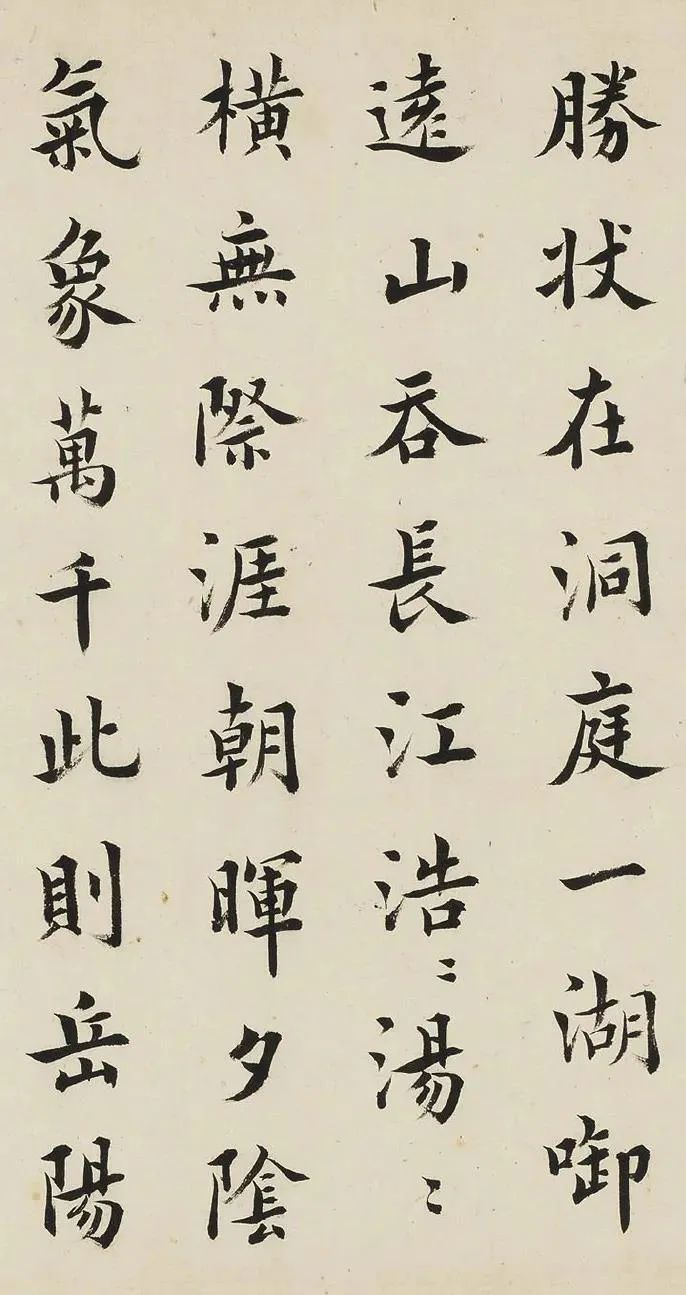 勝狀在洞庭一湖啣
遠山吞長江浩〻湯〻
橫無際涯朝暉夕陰
氣象萬千此則岳陽